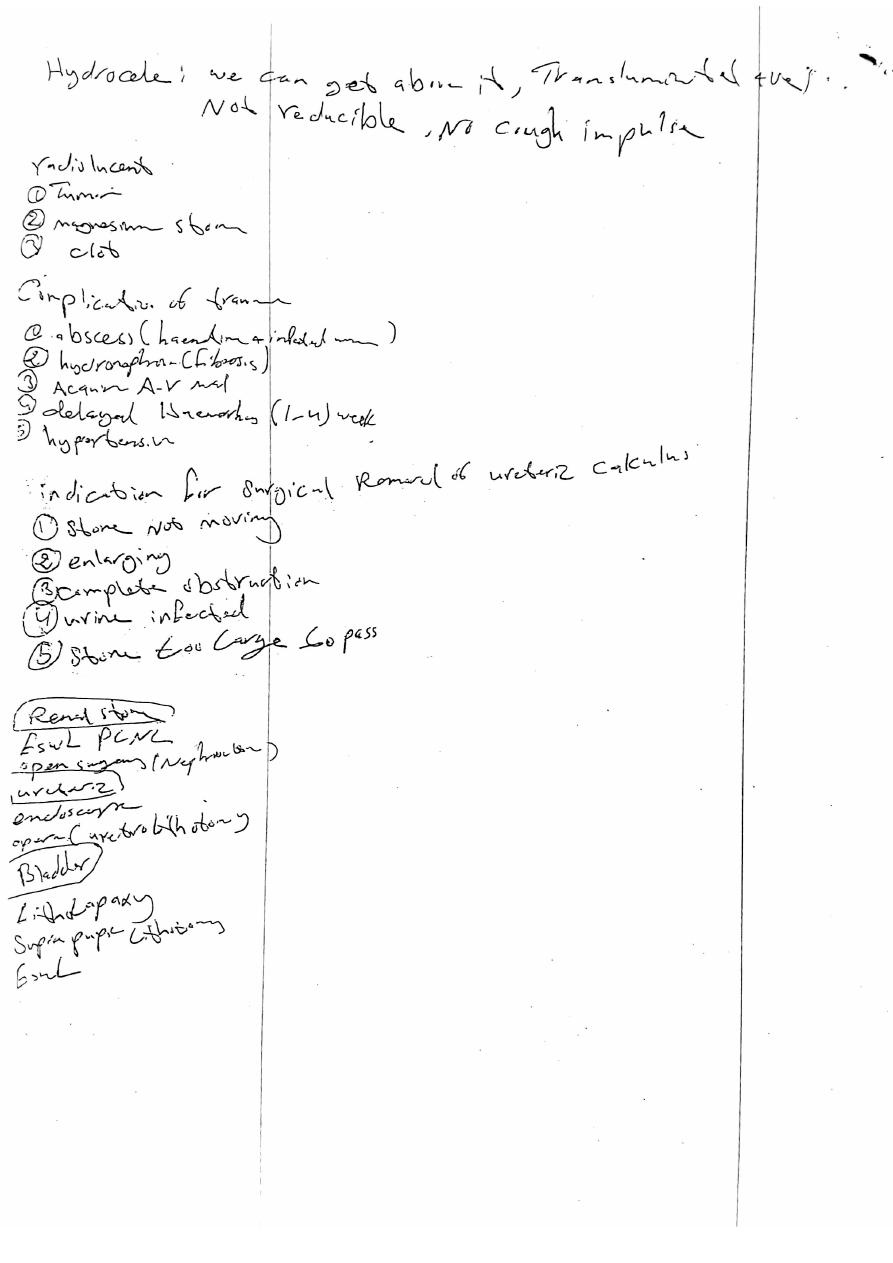 Hydrocele: we can get above it, Transluminated +ve,
Not reducible, No Cough impulse
radiolucent
① Tumor
② magnesium stone
③ clot
Complication of trauma
① abscess (haematoma + infected)
② hydronephro (fibrosis)
③ Acquir A-V mal
④ delayed Haemorrhag (1-4) week
⑤ hypertension
indication for surgical Removal of ureteric calculus
① Stone not moving
② enlarging
③ complete obstruction
④ urine infected
⑤ Stone too large to pass
Renal stone
Eswl PCNL
open surgery (Nephrectom)
ureteric
endoscope
open (uretrolithotomy
Bladder
Litholapaxy
Supra pupic Lithotomy
Eswl